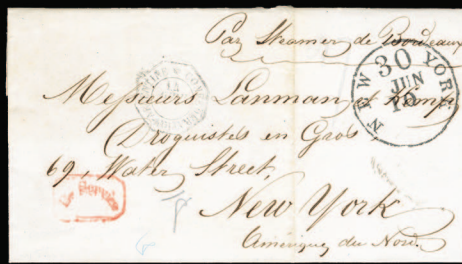 Par Steamer de Bordeaux
NEW YORK
30
JUN
Messieurs Lanman & Kemp
Droguistes en Gros,
69, Water Street,
New York
Amérique du Nord.